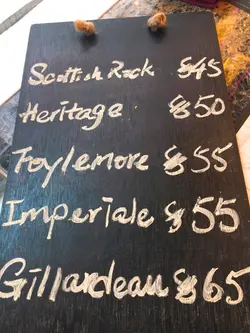 Scottish Rock $45
Heritage $50
Foylemore $55
Imperiale $55
Gillardeau $65